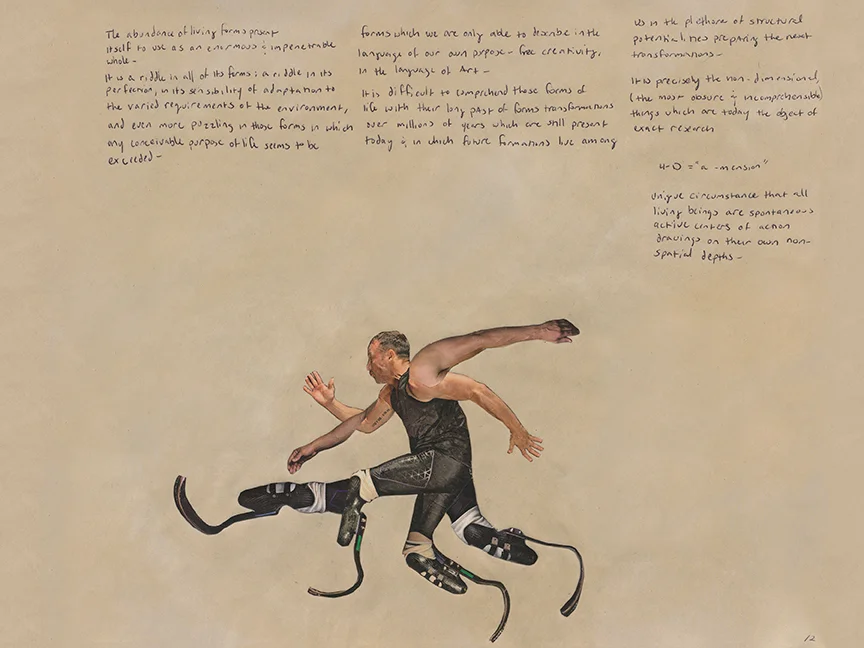 The abundance of living forms present
itself to use as an enormous & impenetrable
whole -
It is a riddle in all of its forms: a riddle in its
perfection, in its sensibility of adaptation to
the varied requirements of the environment,
and even more puzzling in those forms in which
any conceivable purpose of life seems to be
exceeded -
forms which we are only able to describe in the
language of our own purpose - free creativity,
in the language of Art -
It is difficult to comprehend those forms of
life with their long past of forms transformations
over millions of years which are still present
today & in which future formations live among
us in the plethore of structural
potentialities preparing the next
transformations -
It is precisely the non-dimensional,
(the most obsure & incomprehensible)
things which are today the object of
exact research
4-D = "a -mension"
unique circumstance that all
living beings are spontaneous
active centers of action
drawings on their own non-
spatial depths -
12